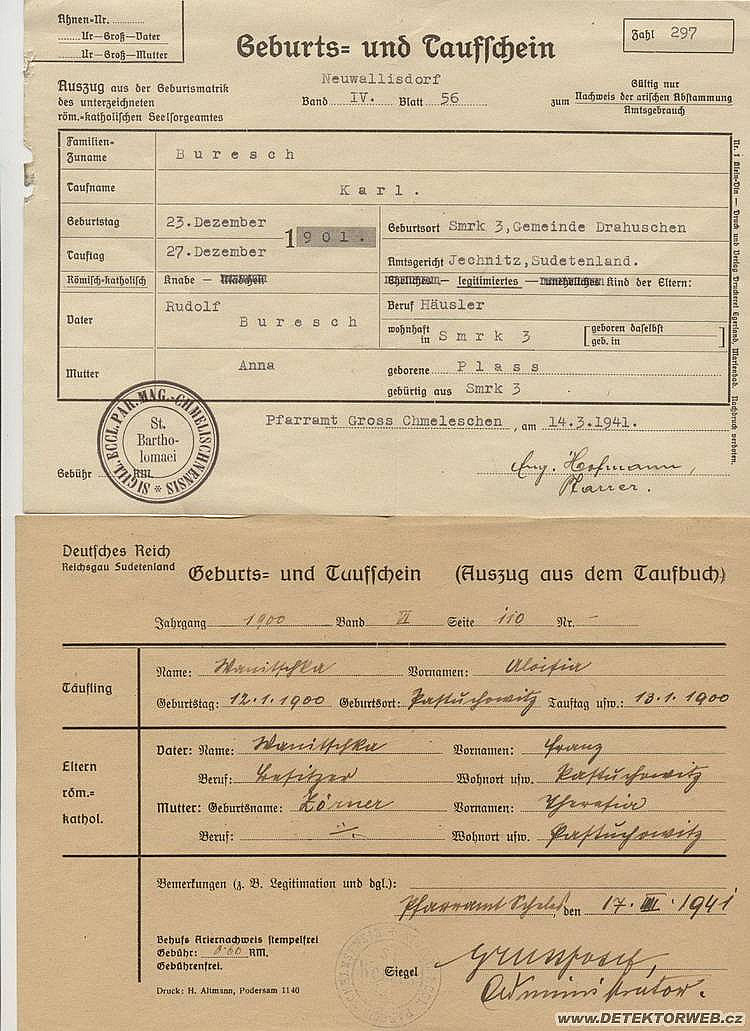 Ahnen-Nr. ............
....... Ur-Groß-Vater
....... Ur-Groß-Mutter
Geburts= und Taufschein
Zahl 297
Neuwallisdorf
Auszug aus der Geburtsmatrik
des unterzeichneten
röm.=katholischen Seelsorgeamtes
Band IV. Blatt 56
zum
Gültig nur
Nachweis der arischen Abstammung
Amtsgebrauch
Familien-
Zuname
Buresch
Taufname
Karl.
Geburtstag 23.Dezember
1901.
Geburtsort Smrk 3,Gemeinde Drahuschen
Tauftag 27.Dezember
Amtsgericht Jechnitz,Sudetenland.
Römisch=katholisch Knabe – Mädchen
Eheliches – legitimiertes – uneheliches Kind der Eltern:
Vater
Rudolf
Buresch
Beruf Häusler
wohnhaft
in Smrk 3
geboren daselbst
geb. in
Mutter
Anna
geborene Plass
gebürtig aus Smrk 3
Pfarramt Gross Chmeleschen, am 14.3.1941.
SIGILL.ECCL.PAR.MAG.-CHMELISCHNENSIS
St.
Bartho-
lomaei
Gebühr RM
Hofmann,
Pfarrer.
Nachdruck verboten.
Deutsches Reich
Reichsgau Sudetenland
Geburts= und Taufschein (Auszug aus dem Taufbuch)
Jahrgang 1900 Band VI Seite 110 Nr. -
Täufling
Name: Wanitschka Vornamen: Aloisia
Geburtstag: 12.1.1900 Geburtsort: Pastuchowitz Tauftag usw.: 13.1.1900
Eltern
röm.=
kathol.
Vater: Name: Wanitschka Vornamen: Franz
Beruf: Besitzer Wohnort usw. Pastuchowitz
Mutter: Geburtsname: Zörner Vornamen: Theresia
Beruf: Wohnort usw. Pastuchowitz
Bemerkungen (z. B. Legitimation und dgl.):
Pfarramt Scheles, den 17. III. 1941
Behufs Ariernachweis stempelfrei
Gebühr: 0.60 RM.
Gebührenfrei.
Siegel
Administrator.
Druck: H. Altmann, Podersam 1140
www.DETEKTORWEB.cz